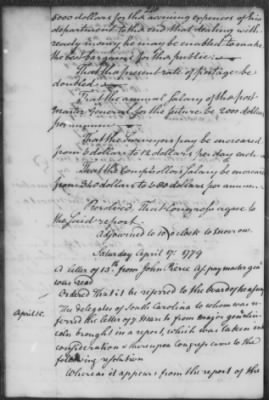 5000 dollars for the accruing expences of his
department to the end that dealing with
ready money he may be enabled to make
the best bargains for the public
That the present rate of postage be
doubled
That the annual Salary of the post
master General for the future be 2000 dollars
per annum
That the Surveyors pay be encreased
from 6 dollars to 12 dollars per day each
That the Comptrollers Salary be encrease
from dollars to dollars per annum
Resolved, That Congress agree to
the said report
adjourned to 10 oClock to morrow.
Saturday April 17. 1779
A letter of 13th from John Pierce pay master genl
was read
Ordered That it be referred to the board of treasury
The delegates of South Carolina to whom was re
ferred the letter of 7 from major genl Lin
coln brought in a report, which was taken into
consideration & thereupon Congress came to the
following resolution
Whereas it appears from the report of the